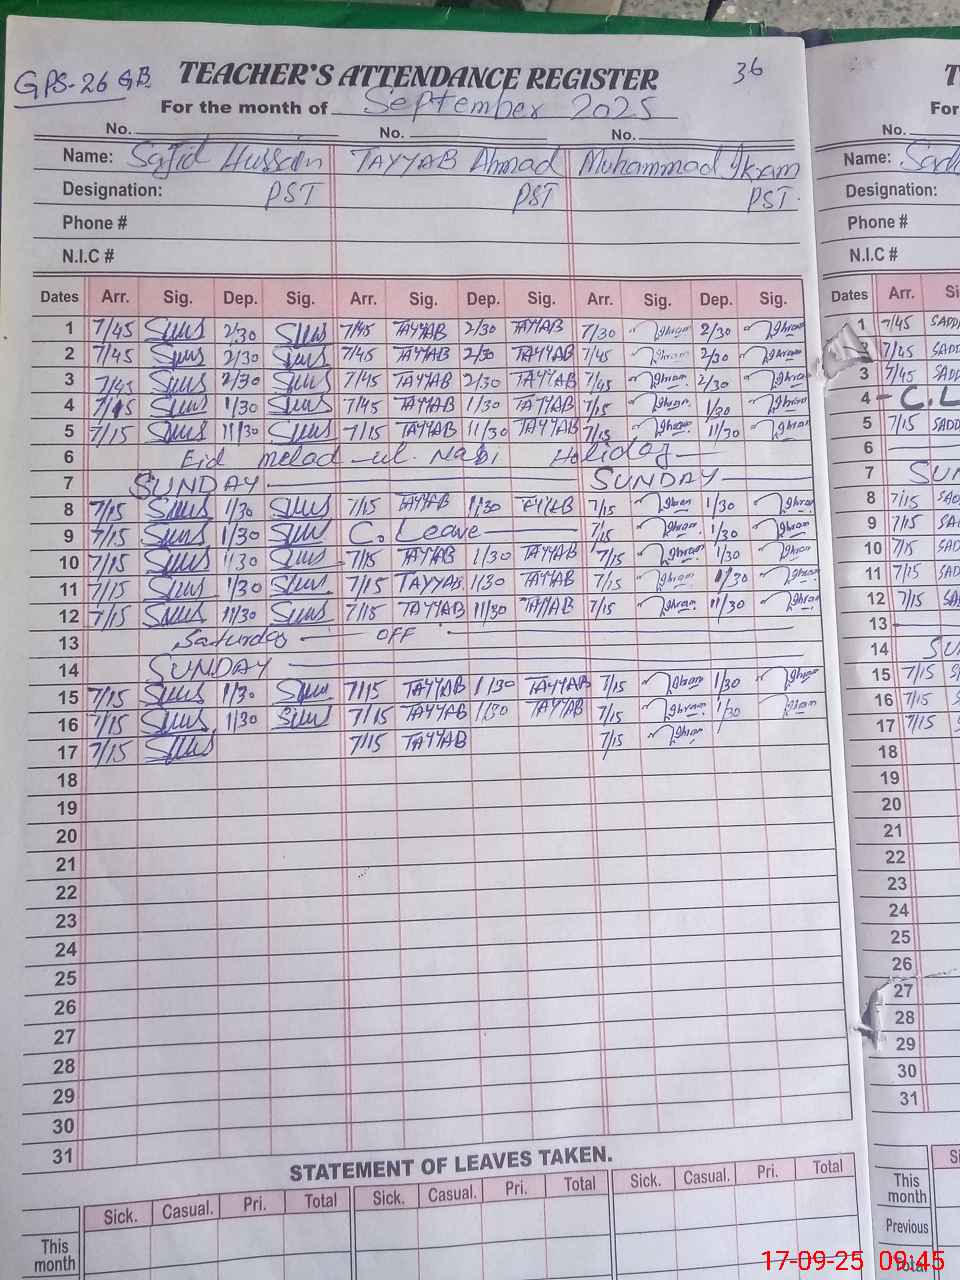 GPS-26 GB. TEACHER'S ATTENDANCE REGISTER 36
For the month of September 2025
No. No. No.
Name: Sajid Hussain TAYYAB Ahmad Muhammad Ikram
Designation: PST PST PST.
Phone #
N.I.C #
Dates Arr. Sig. Dep. Sig. Arr. Sig. Dep. Sig. Arr. Sig. Dep. Sig.
1 7/45 2/30 7/45 TAYYAB 2/30 TAYYAB 7/30 Ikram 2/30 Ikram
2 7/45 2/30 7/45 TAYYAB 2/30 TAYYAB 7/45 Ikram 2/30 Ikram
3 7/45 2/30 7/45 TAYYAB 2/30 TAYYAB 7/45 Ikram 2/30 Ikram
4 7/15 1/30 7/45 TAYYAB 1/30 TAYYAB 7/15 Ikram 1/30 Ikram
5 7/15 11/30 7/15 TAYYAB 11/30 TAYYAB 7/15 Ikram 11/30 Ikram
6 Eid melad-ul. Nabi Holiday
7 SUNDAY SUNDAY
8 7/15 1/30 7/15 TAYYAB 1/30 TAYYAB 7/15 Ikram 1/30 Ikram
9 7/15 1/30 C. Leave 7/15 Ikram 1/30 Ikram
10 7/15 1/30 7/15 TAYYAB 1/30 TAYYAB 7/15 Ikram 1/30 Ikram
11 7/15 1/30 7/15 TAYYAB 1/30 TAYYAB 7/15 Ikram 11/30 Ikram
12 7/15 11/30 7/15 TAYYAB 11/30 TAYYAB 7/15 Ikram 11/30 Ikram
13 Saturday OFF
14 SUNDAY
15 7/15 1/30 7/15 TAYYAB 1/30 TAYYAB 7/15 Ikram 1/30 Ikram
16 7/15 1/30 7/15 TAYYAB 1/30 TAYYAB 7/15 Ikram 1/30 Ikram
17 7/15 7/15 TAYYAB 7/15 Ikram
18
19
20
21
22
23
24
25
26
27
28
29
30
31
STATEMENT OF LEAVES TAKEN.
Sick. Casual. Pri. Total Sick. Casual. Pri. Total Sick. Casual. Pri. Total
This month
T
For
No.
Name: Sadd
Designation:
Phone #
N.I.C #
Dates Arr. Si
1 7/45 SADD
2 7/45 SADD
3 7/45 SADD
4 - C.L
5 7/15 SADD
6
7 SUN
8 7/15 SAD
9 7/15 SA
10 7/15 SA
11 7/15 SA
12 7/15 SA
13
14 SU
15 7/15 S
16 7/15 S
17 7/15 S
18
19
20
21
22
23
24
25
26
27
28
29
30
31
Si
This month
Previous
Total
17-09-25 09:45